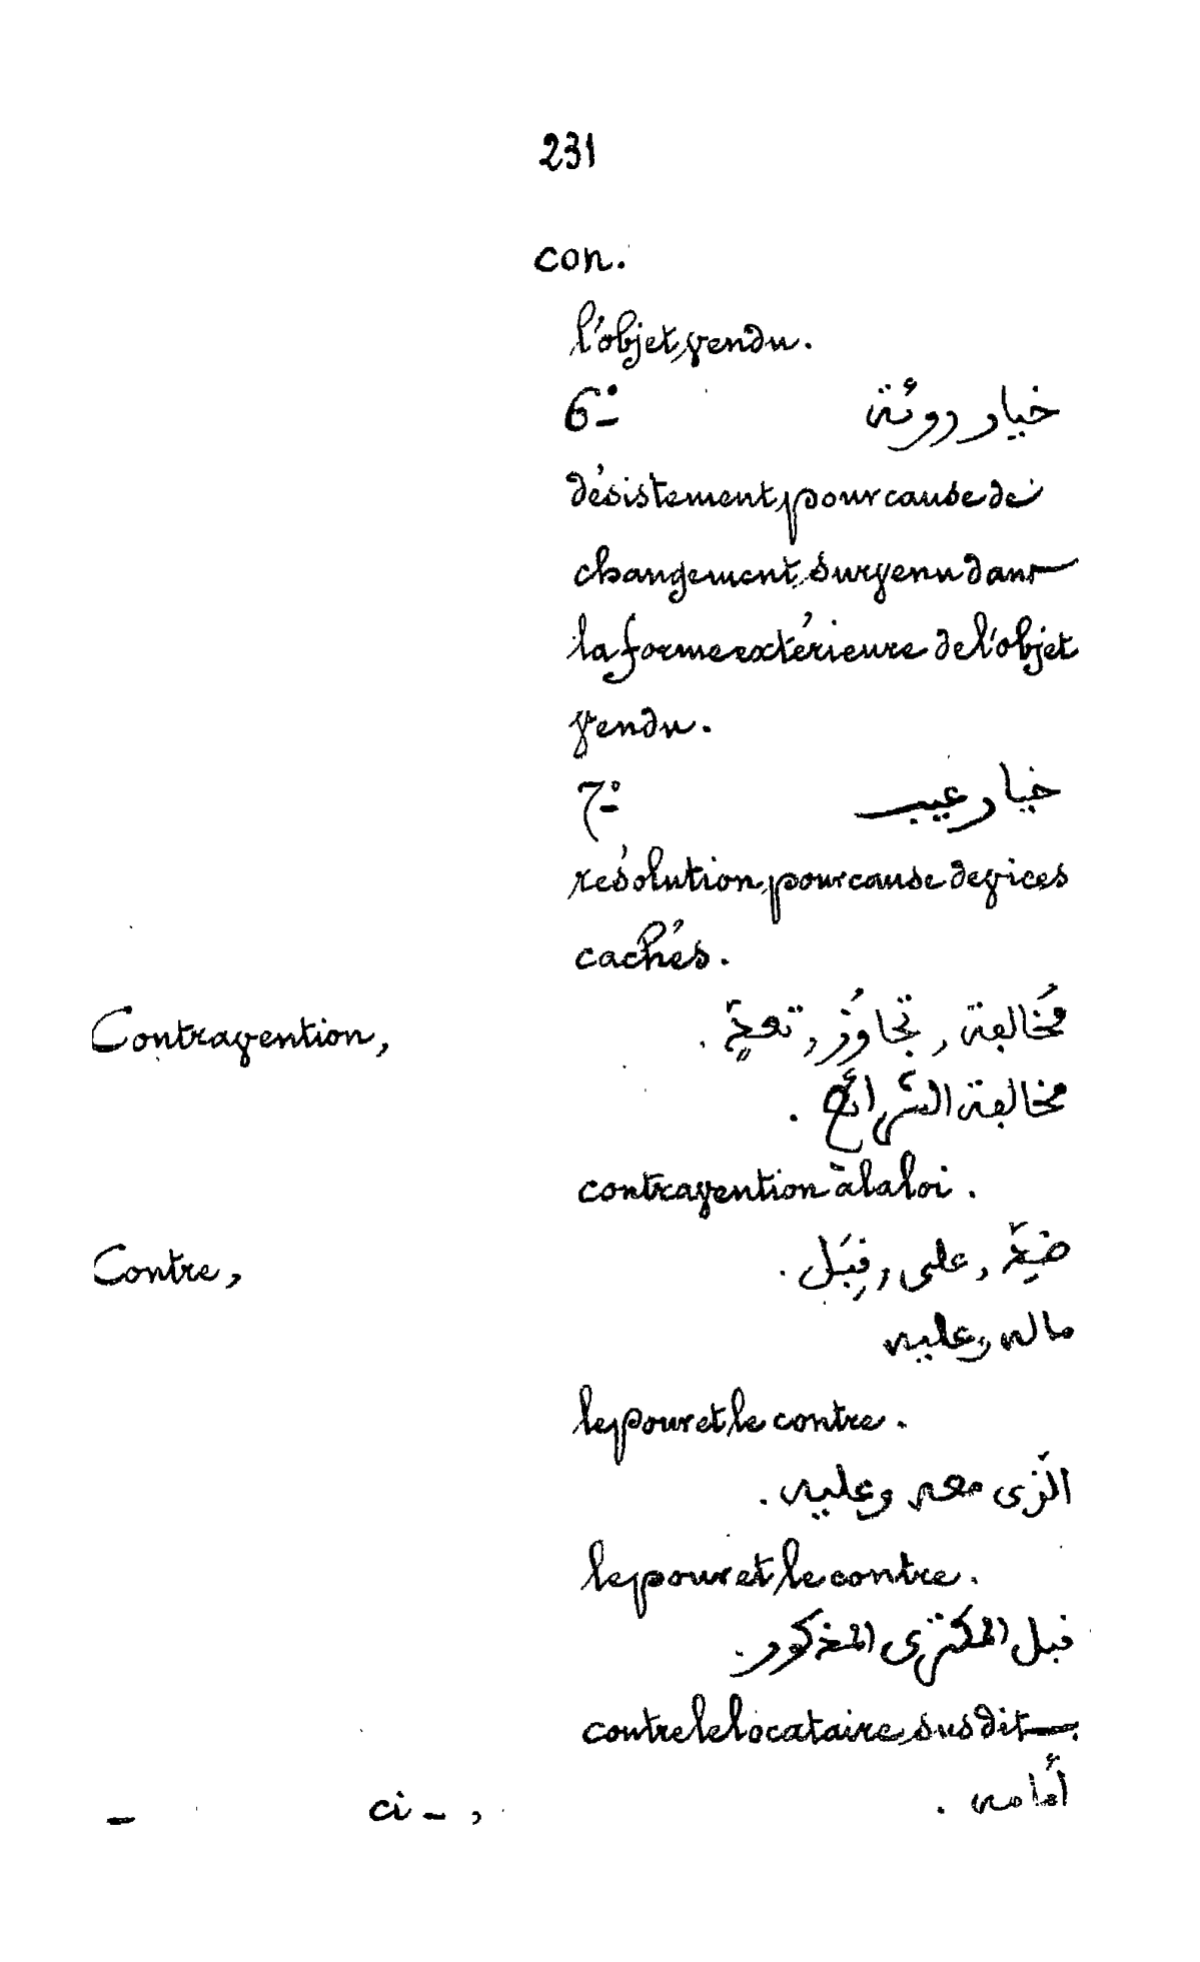 231
con.
l'objet vendu.
6° خيار روئة
désistement pour cause de
changement survenu dans
la forme extérieure de l'objet
vendu.
7° خيار عيب
résolution pour cause de vices
cachés.
Contravention, مُخالفة, تجاوُز, تعدٍّ.
مخالفة الشرائع.
contravention à la loi.
Contre, على, قِبَل.
ماله وعليه
le pour et le contre.
الّذى معه وعليه.
le pour et le contre.
قبل المكترى المذكور.
contre le locataire susdit.
— ci-, أمامه.